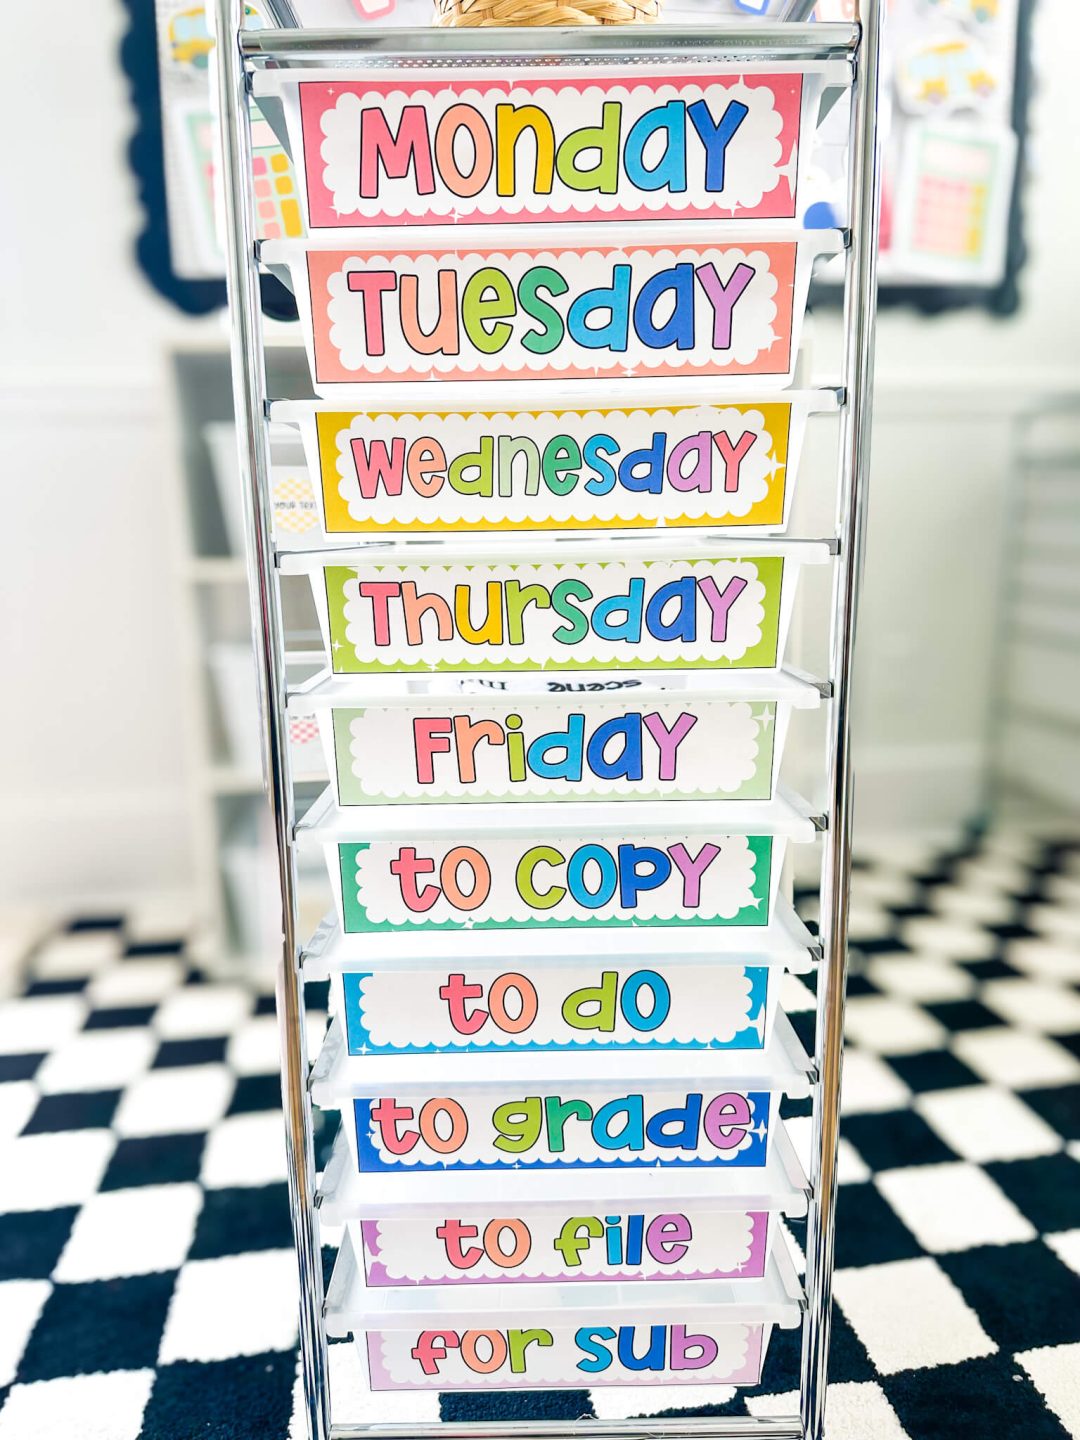 Monday
Tuesday
Wednesday
Thursday
scene
Friday
to copy
to do
to grade
to file
for sub
YOUR TEXT